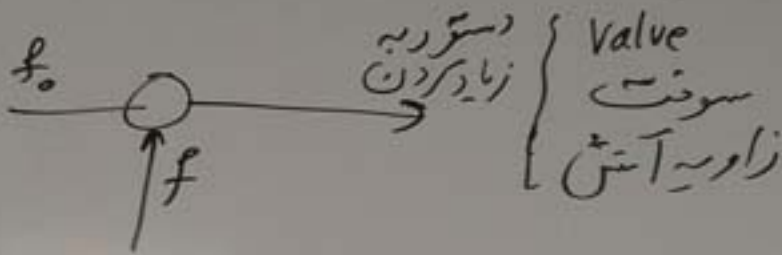 f₀
f
دستور به
زیاد کردن
Value
سوخت
زاویه آتش